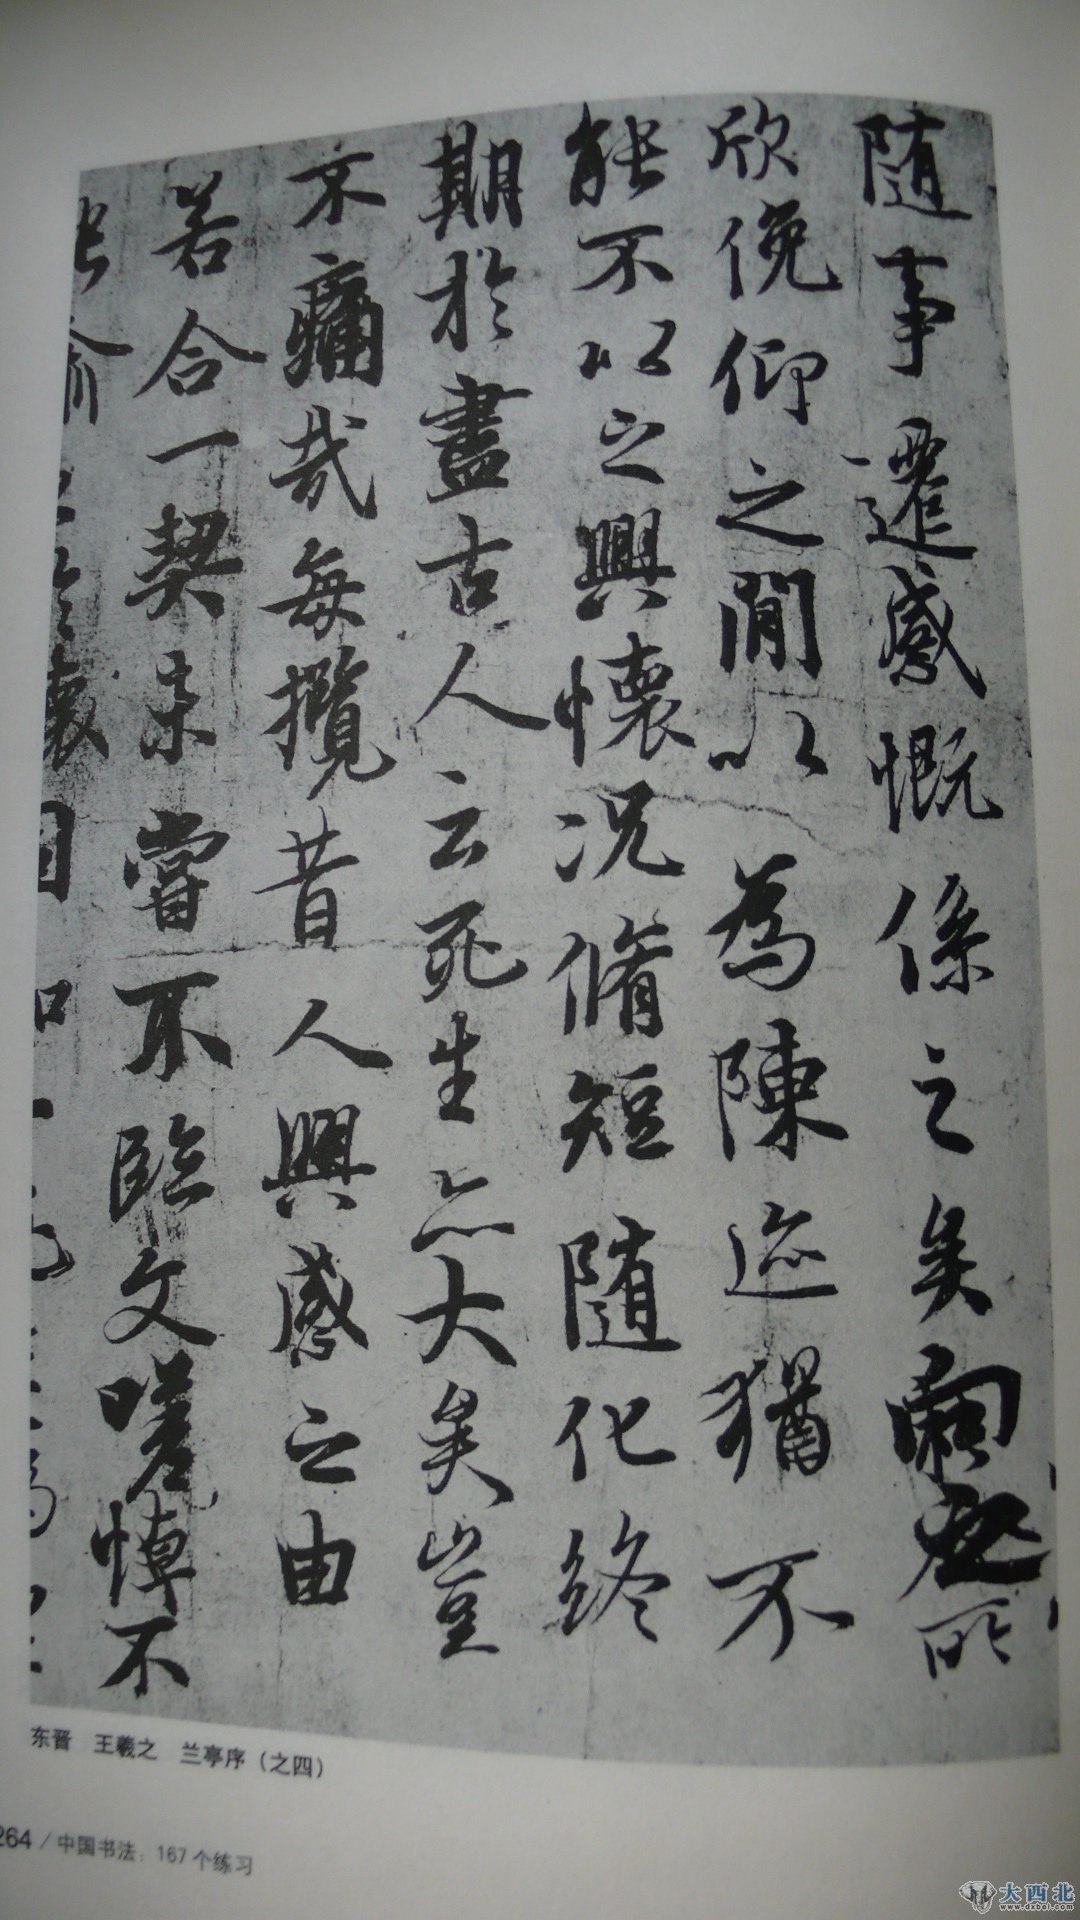 随事遷感慨係之矣向之所
欣俛仰之閒以為陳迹猶不
能不以之興懷況脩短隨化終
期於盡古人云死生亦大矣豈
不痛哉每攬昔人興感之由
若合一契未嘗不臨文嗟悼不
能喻之於懷固知一死生為
东晋 王羲之 兰亭序（之四）
264 / 中国书法：167个练习
大西北
www.dxbei.com